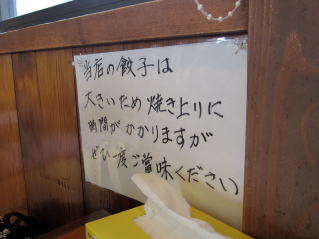 当店の餃子は
大きいため焼き上りに
時間がかかりますが
ぜひ一度ご賞味ください